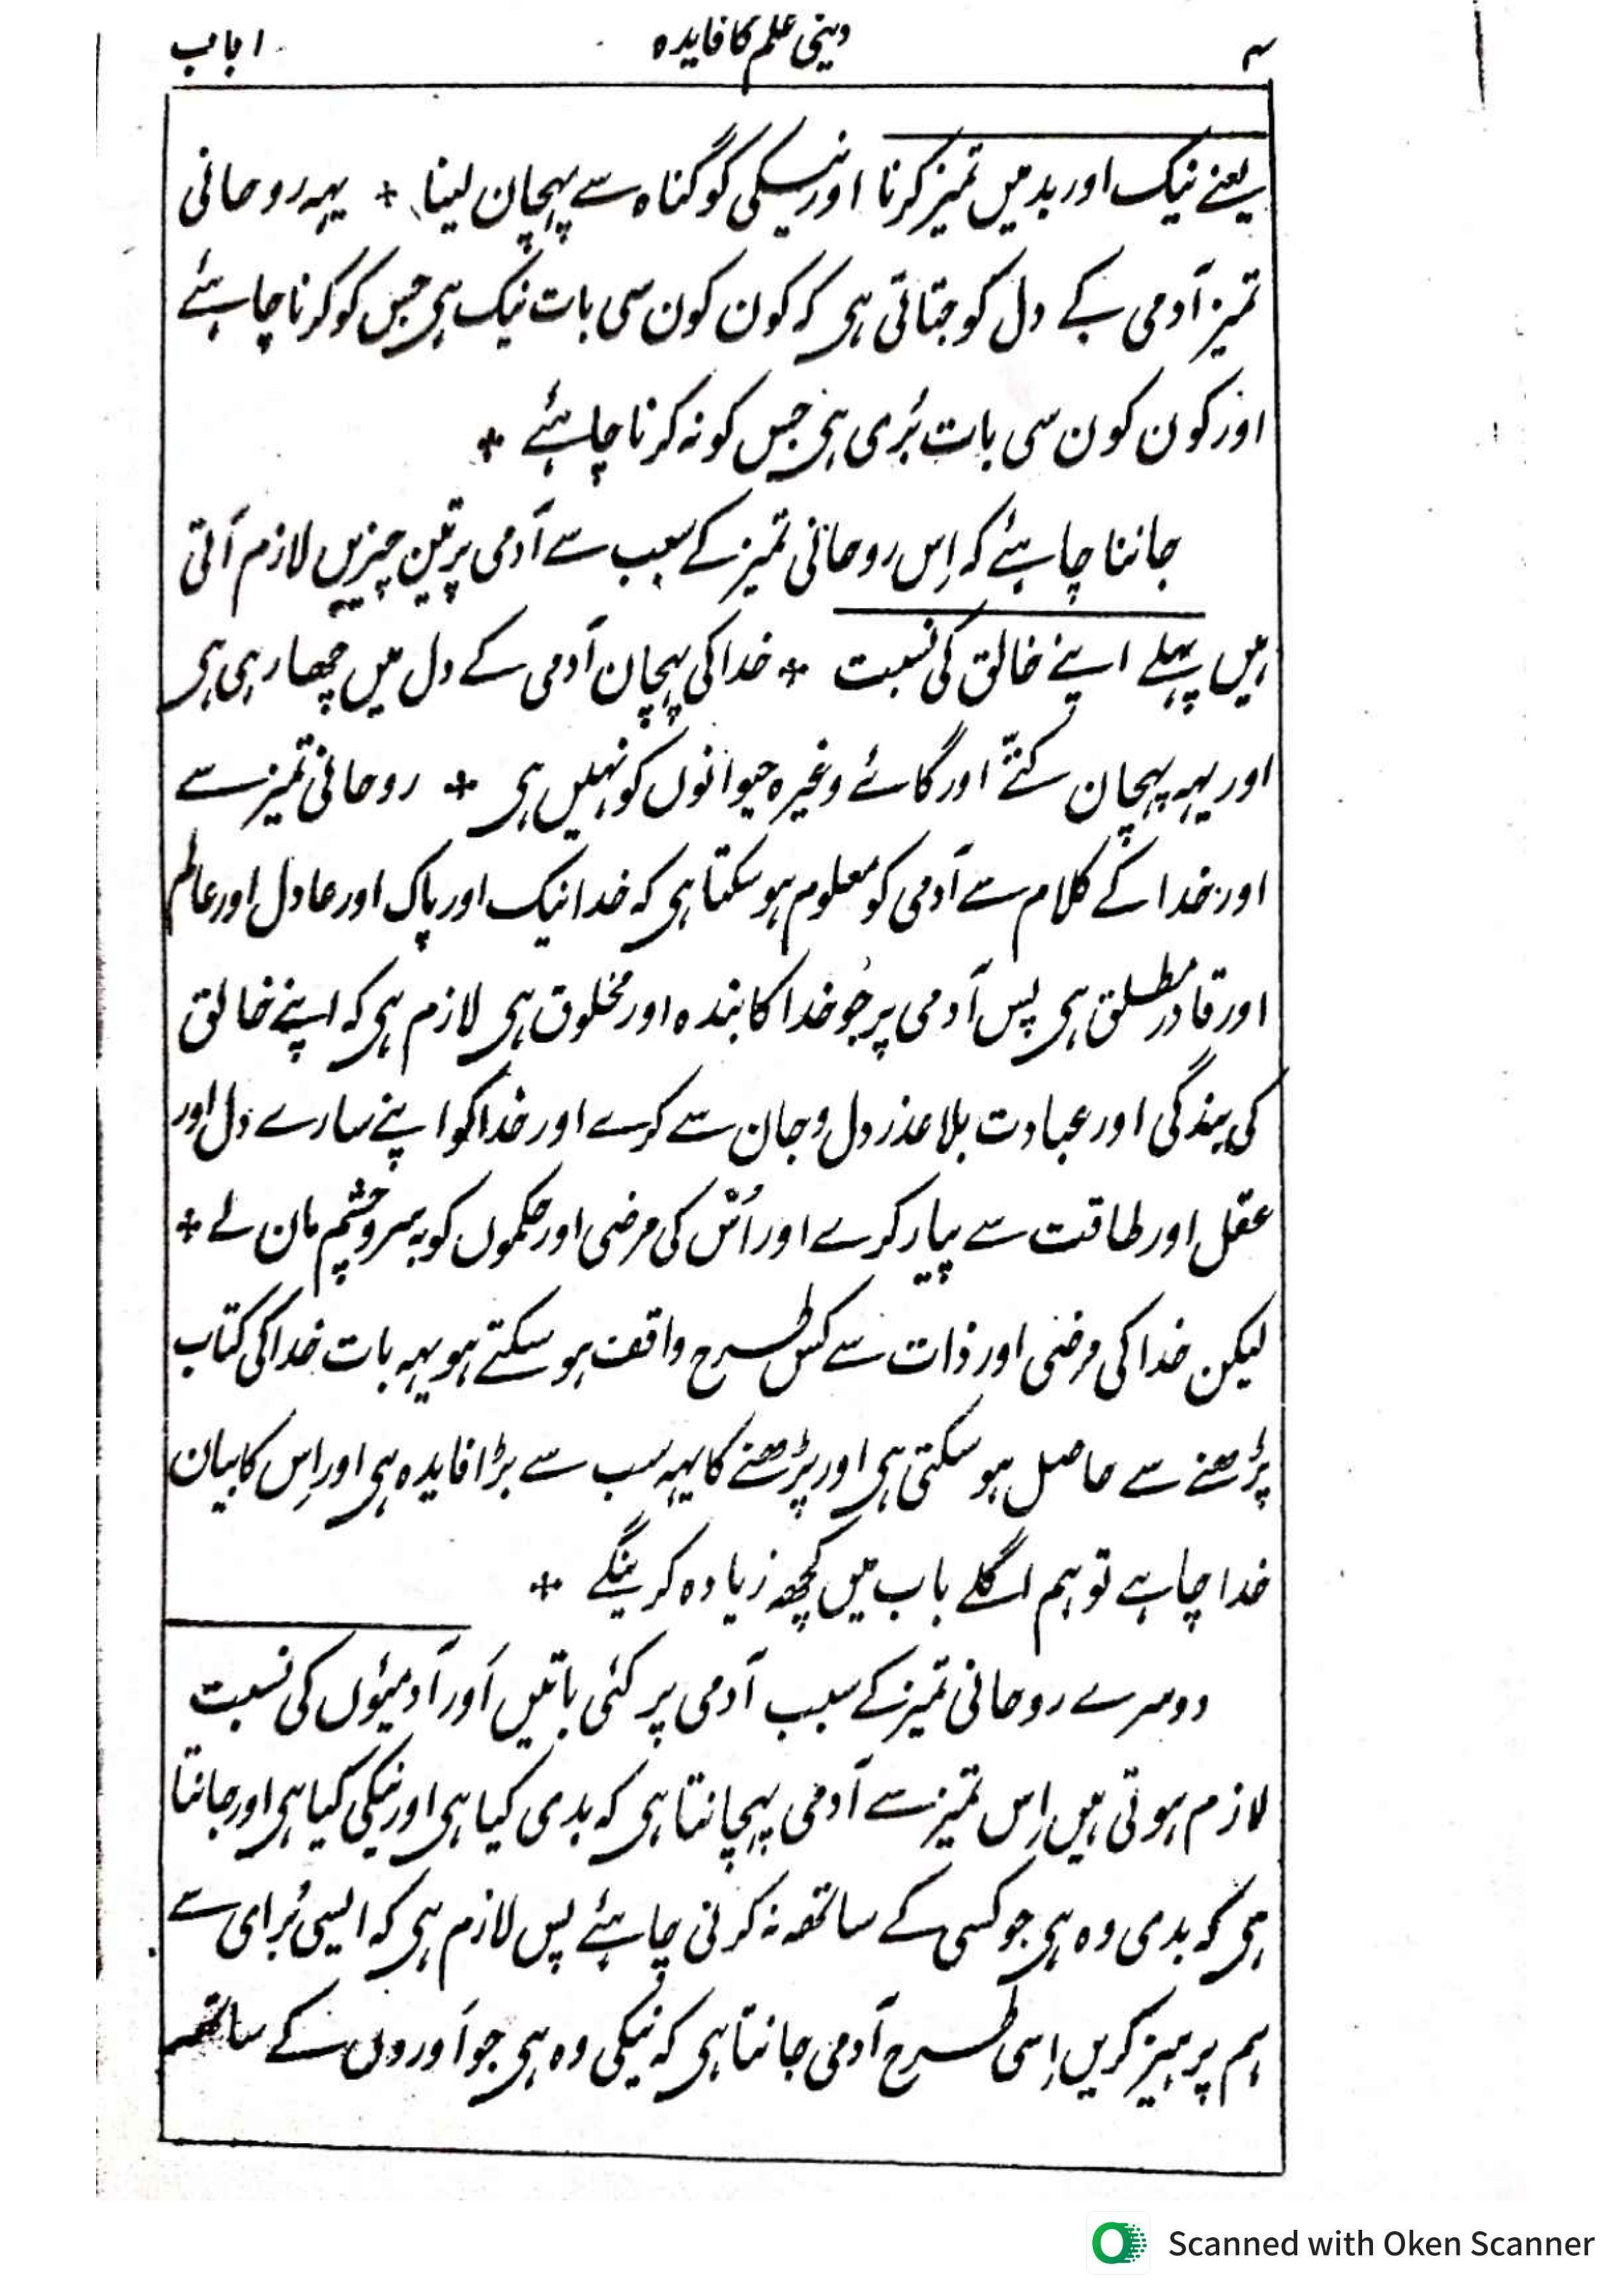 ۴ دینی علم کا فایدہ ۱ باب
یعنے نیک اور بد میں تمیز کرنا اور نیکی کو گناہ سے پہچان لینا * یہہ روحانی
تمیز آدمی کے دل کو جتاتی ہی کہ کون کون سی بات نیک ہی جس کو کرنا چاہئے
اور کون کون سی بات بُری ہی جس کو نہ کرنا چاہئے *
جاننا چاہئے کہ اِس روحانی تمیز کے سبب سے آدمی پر تین چیزیں لازم آتی
ہیں پہلے اپنے خالق کی نسبت * خدا کی پہچان آدمی کے دل میں چھا رہی ہی
اور یہہ پہچان کتّے اور گائے وغیرہ حیوانوں کو نہیں ہی * روحانی تمیز سے
اور خدا کے کلام سے آدمی کو معلوم ہو سکتا ہی کہ خدا نیک اور پاک اور عادل اور عالم
اور قادر مطلق ہی پس آدمی پر جو خدا کا بندہ اور مخلوق ہی لازم ہی کہ اپنے خالق
کی بندگی اور عبادت بلا عذر دل و جان سے کرے اور خدا کو اپنے سارے دل اور
عقل اور طاقت سے پیار کرے اور اُس کی مرضی اور حکموں کو بہ سرو چشم مان لے *
لیکن خدا کی مرضی اور ذات سے کس طرح واقف ہو سکتے ہو یہہ بات خدا کی کتاب
پڑھنے سے حاصل ہو سکتی ہی اور پڑھنے کا یہہ سب سے بڑا فایدہ ہی اور اِس کا بیان
خدا چاہے تو ہم اگلے باب میں کچھ زیادہ کرینگے *
دوسرے روحانی تمیز کے سبب آدمی پر کئی باتیں اَور آدمیئوں کی نسبت
لازم ہوتی ہیں اِس تمیز سے آدمی پہچانتا ہی کہ بدی کیا ہی اور نیکی کیا ہی اور جانتا
ہی کہ بدی وہ ہی جو کسی کے ساتھ نہ کرنی چاہئے پس لازم ہی کہ ایسی بُرای سے
ہم پرہیز کریں اِسی طرح آدمی جانتا ہی کہ نیکی وہ ہی جو اَوروں کے ساتھ
Scanned with Oken Scanner